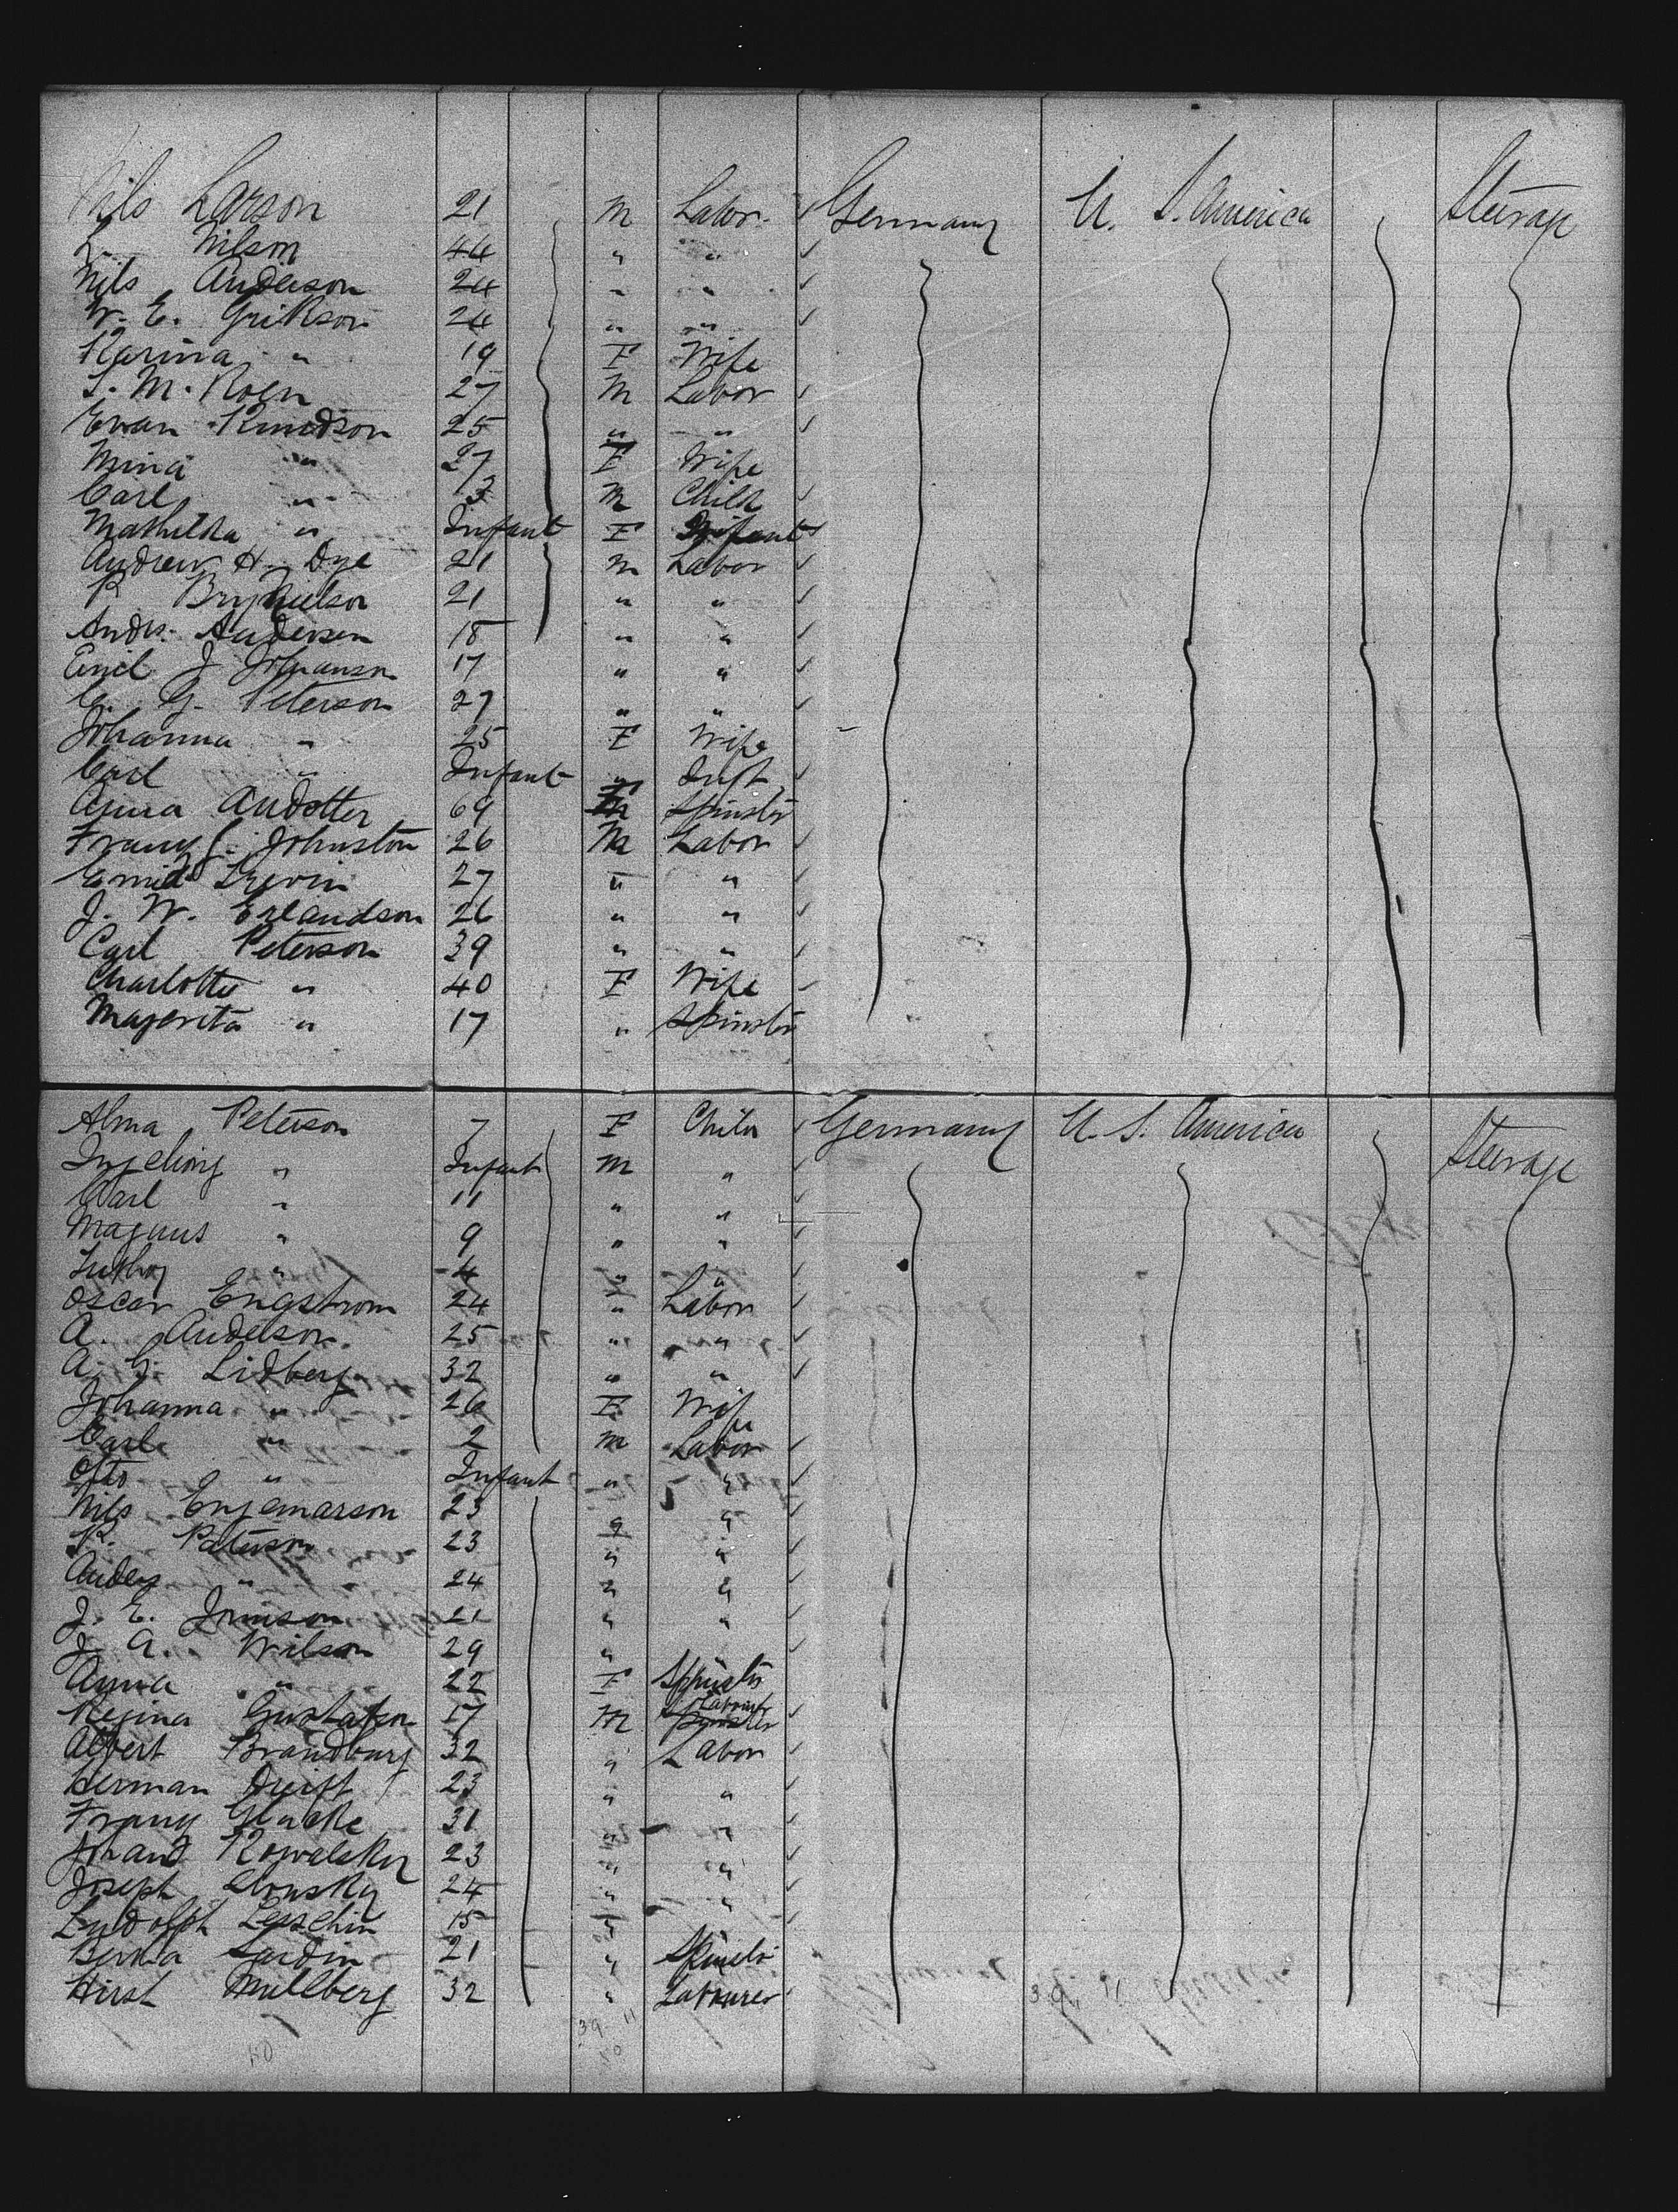 Nils Larson 21 M Labor Germany U. S. America Steerage
L. Nilson 44 " "
Nils Anderson 24 " "
W. E. Grikson 24 " "
Karina " 19 F Wife
S. M. Roen 27 M Labor
Evan Knudson 25 " "
Mina " 27 F Wife
Carl " 3 M Child
Mathilda " Infant F Infant
Andrew H. Dye 21 M Labor
P 21 " "
Andrs. Andersen 18 " "
Emil J Johanson 17 " "
C. G. Peterson 27 " "
Johanna " 25 F Wife
Carl " Infant " Inft
Anna Andotter 69 Spinstr
Franz J. Johnston 26 M Labor
Emil 27 " "
J. W. Erlandson 26 " "
Carl Peterson 39 " "
Charlotte " 40 F Wife
Magerita " 17 " Spinstr
Alma Peterson 7 F Child Germany U. S. America Steerage
" Infant M "
Carl " 11 " "
Magnus " 9 " "
" 4 " "
Oscar Engstrom 24 " Labor
A. Anderson 25 " "
A. G. Lidberg 32 " "
Johanna " 26 F Wife
Carl " 2 M Labor
Otto " Infant " "
Nils Engemarson 23 " "
P. Peterson 23 " "
Anders " 24 " "
J. E. 21 " "
J. A. Wilson 29 "
Anna " 22 F Spinstr
Regina Gustafson 17 M Labourer
Albert Brandburg 32 " Labor
Herman 23 " "
Franz 31 " "
Johand Kowalsky 23 " "
Joseph 24 " "
Ludolph Lesschin 15 "
Berna 21 " Spinstr
Hirsh Mullberg 32 " Labourer
39 11